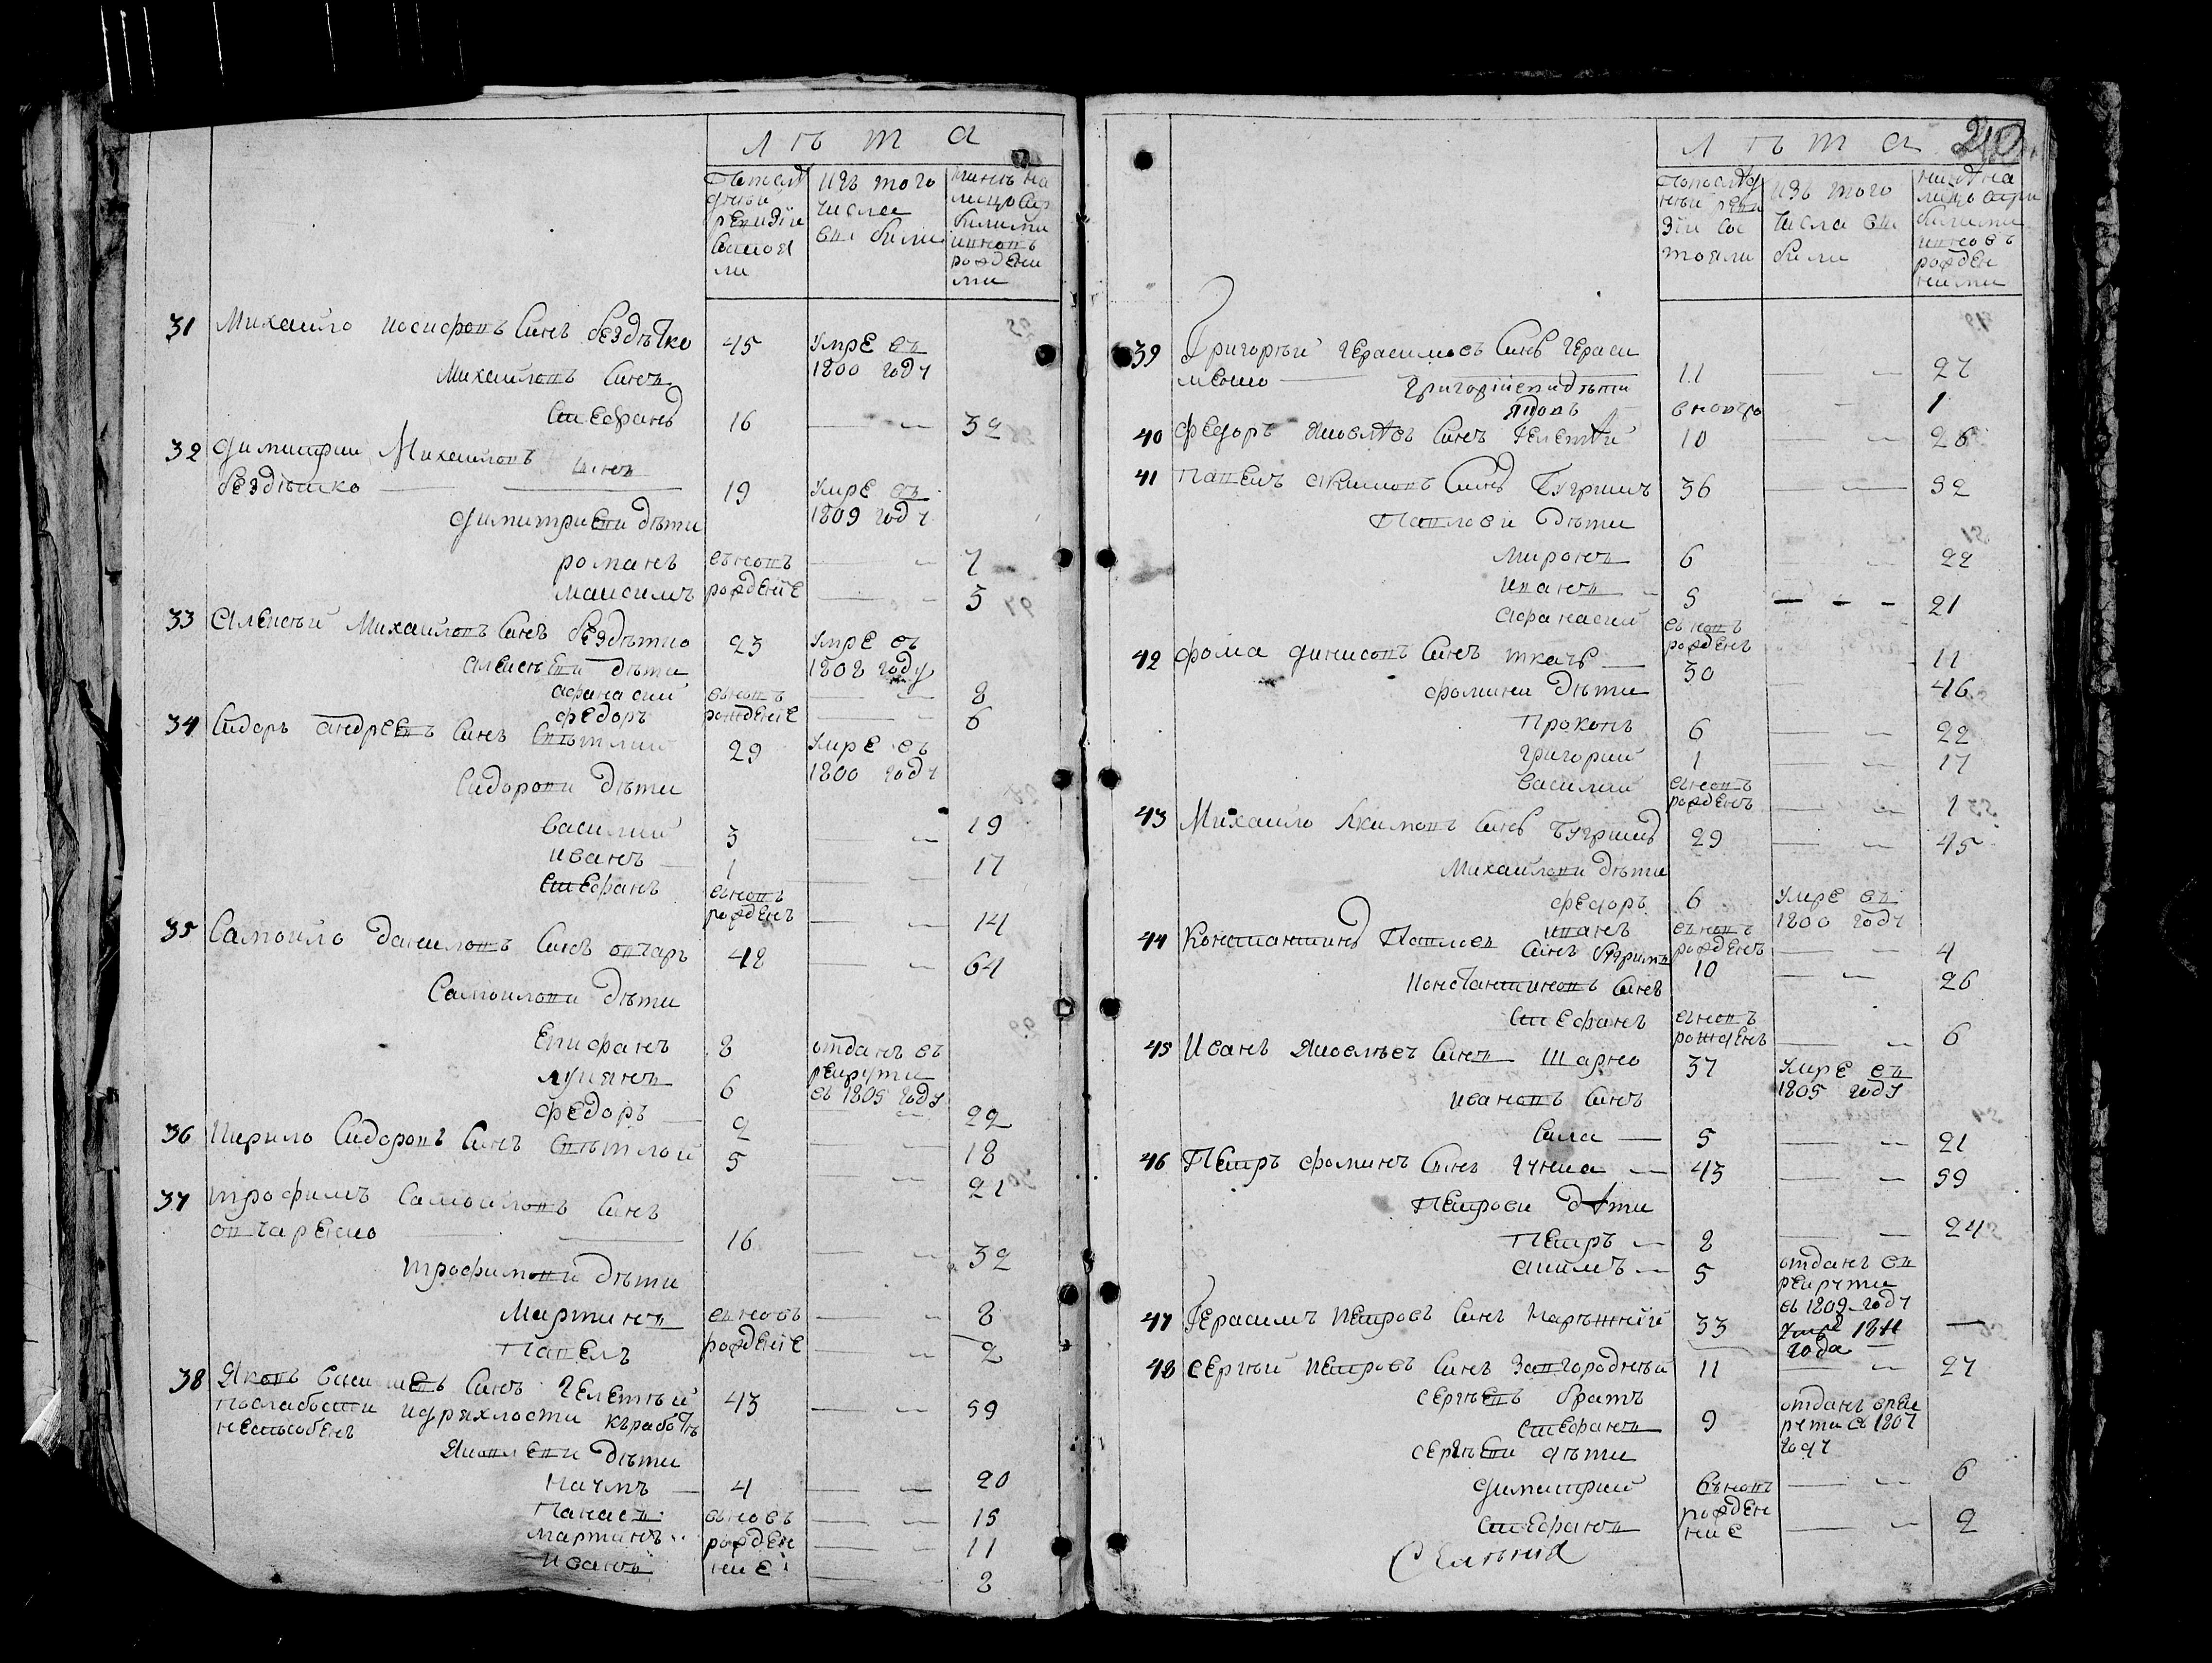 Л ѣ т а
По послѣд
ней
ревизіи
состоя
ли
изъ того
числа
выбили
нинѣ на
лицо съ
билими
и вновь
рождени
ми
31 Михаило иосифовъ синъ бездѣтко 45 Умре въ
1800 году
Михаиловъ синъ
Стефанъ 16 — — 32
32 Димитрии Михаиловъ синъ
бездѣтко — 19 Умре въ
1809 году
Димитриеви дѣти
романъ вновь — — 7
максимъ рожденіе — — 5
33 Алексѣй Михаиловъ синъ бездѣтко 23 Умре въ
1808 году
алексѣеви дѣти
афанасий вновь — — 8
федоръ рожденіе — — 6
34 Сидоръ андреевъ синъ свѣтлий 29 Умре въ
1800 году
Сидорови дѣти
василий 3 — — 19
иванъ — 1 — — 17
стефанъ вновь
рожденъ — — 14
35 Самоило даниловъ синъ овчаръ 48 — — 64
Самоилови дѣти
Епифанъ 8 отданъ въ
рекрути
въ 1805 году
лукянъ 6 — 22
федоръ — 2 — — 18
36 Кирило Сидоровъ синъ свѣтлой 5 — — 21
37 трофимъ Самоиловъ синъ
овчаренко — 16 — 32
трофимови дѣти
Мартинъ вновь — — 8
Павелъ рожденіе — — 2
38 Яковъ василиевъ синъ Гелетѣй 43 — — 59
по слабости и дряхлости къ работѣ
неспособенъ
Яковлеви дѣти
наумъ — 4 — — 20
Панасъ вновь — — 15
мартинъ рожден — — 11
иванъ ние — — 8
Л ѣ т а
По послѣд
ней реви
зіи сос
тояли
изъ того
числа ви
били
нинѣ на
лицъ съ при
билими
и вновь
рожден
ними
39 Григорѣй Герасимовъ синъ Гераси
менко — 11 — — 27
Григорійеви дѣти
яковъ вновъ — 1
40 Федоръ Яковлѣвъ синъ Гелетѣй 10 — — 26
41 Павелъ Акимовъ синъ Бугримъ 36 — — 52
Павлови дѣти
миронъ 6 — — 22
иванъ — 5 — — — 21
афанасий вновь
рожденъ — 11
42 Фома динисовъ синъ ткачь — 30 — 46
фомини дѣти
Прокопъ 6 — — 22
Григорий 1 — — 17
василий вновь
рожденъ — — 1
43 Михаило Акимовъ синъ Бугримъ 29 — — 45
Михаилови дѣти
федоръ 6 Умре въ
1800 году
иванъ вновь
рожденъ — — 4
44 Константинъ Павловъ
синъ бугримъ 10 — — 26
константиновъ синъ
Стефанъ вновь
рожденъ — — 6
45 Иванъ Яковлѣвъ синъ шарко 37 Умре въ
1805 году
ивановъ синъ
Сила — 5 — — 21
46 Петръ фоминъ синъ — 43 — — 59
Петрови дѣти
Петръ — 8 — — 24
акимъ — 5 отданъ въ
рекрути
въ 1809 году
47 Герасимъ петровъ синъ Нарѣжній 33 Умре 1811
года —
48 Сергѣй петровъ синъ Завгороднѣй 11 — — 27
сергѣевъ братъ
стефанъ 9 отданъ в рек
рути въ 1807
году
сергѣеви дѣти
димитрий вновь — — 6
стефанъ рожден
ние — — 2